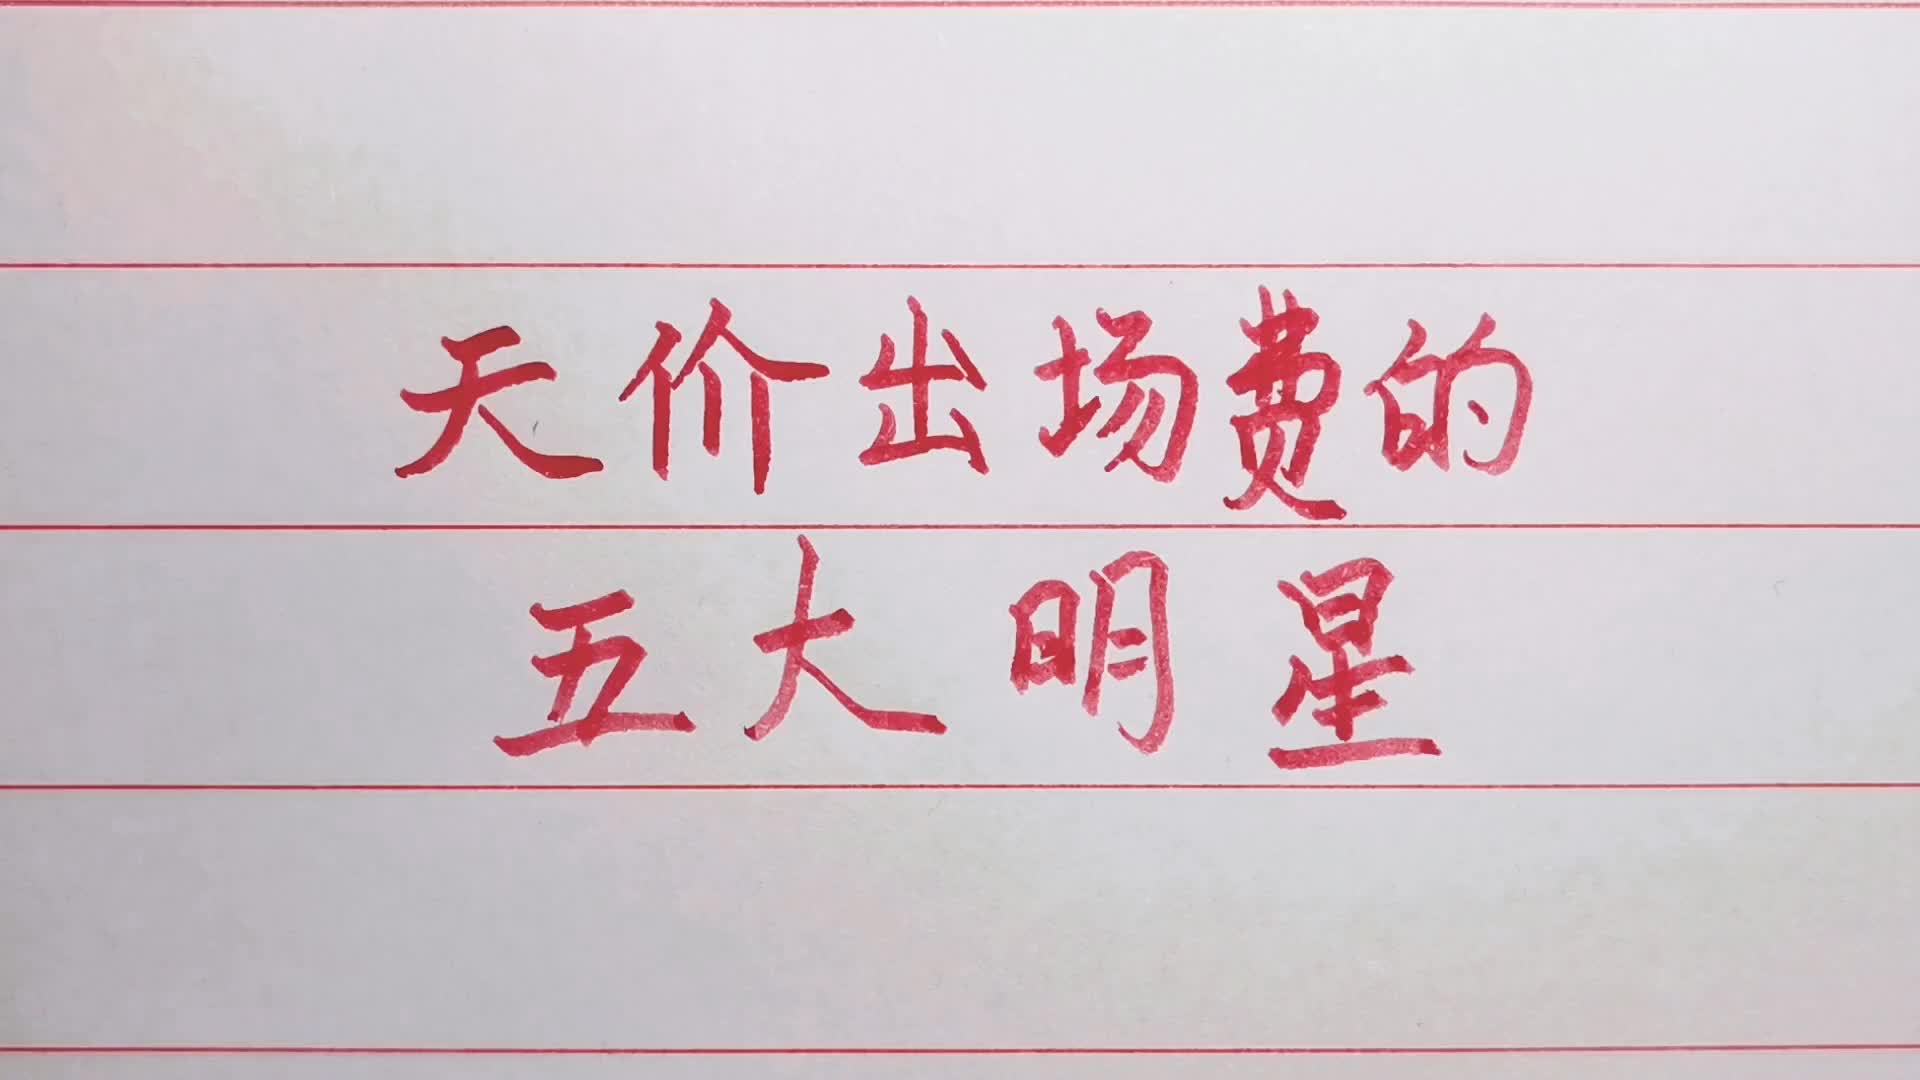 天价出场费的
五大明星